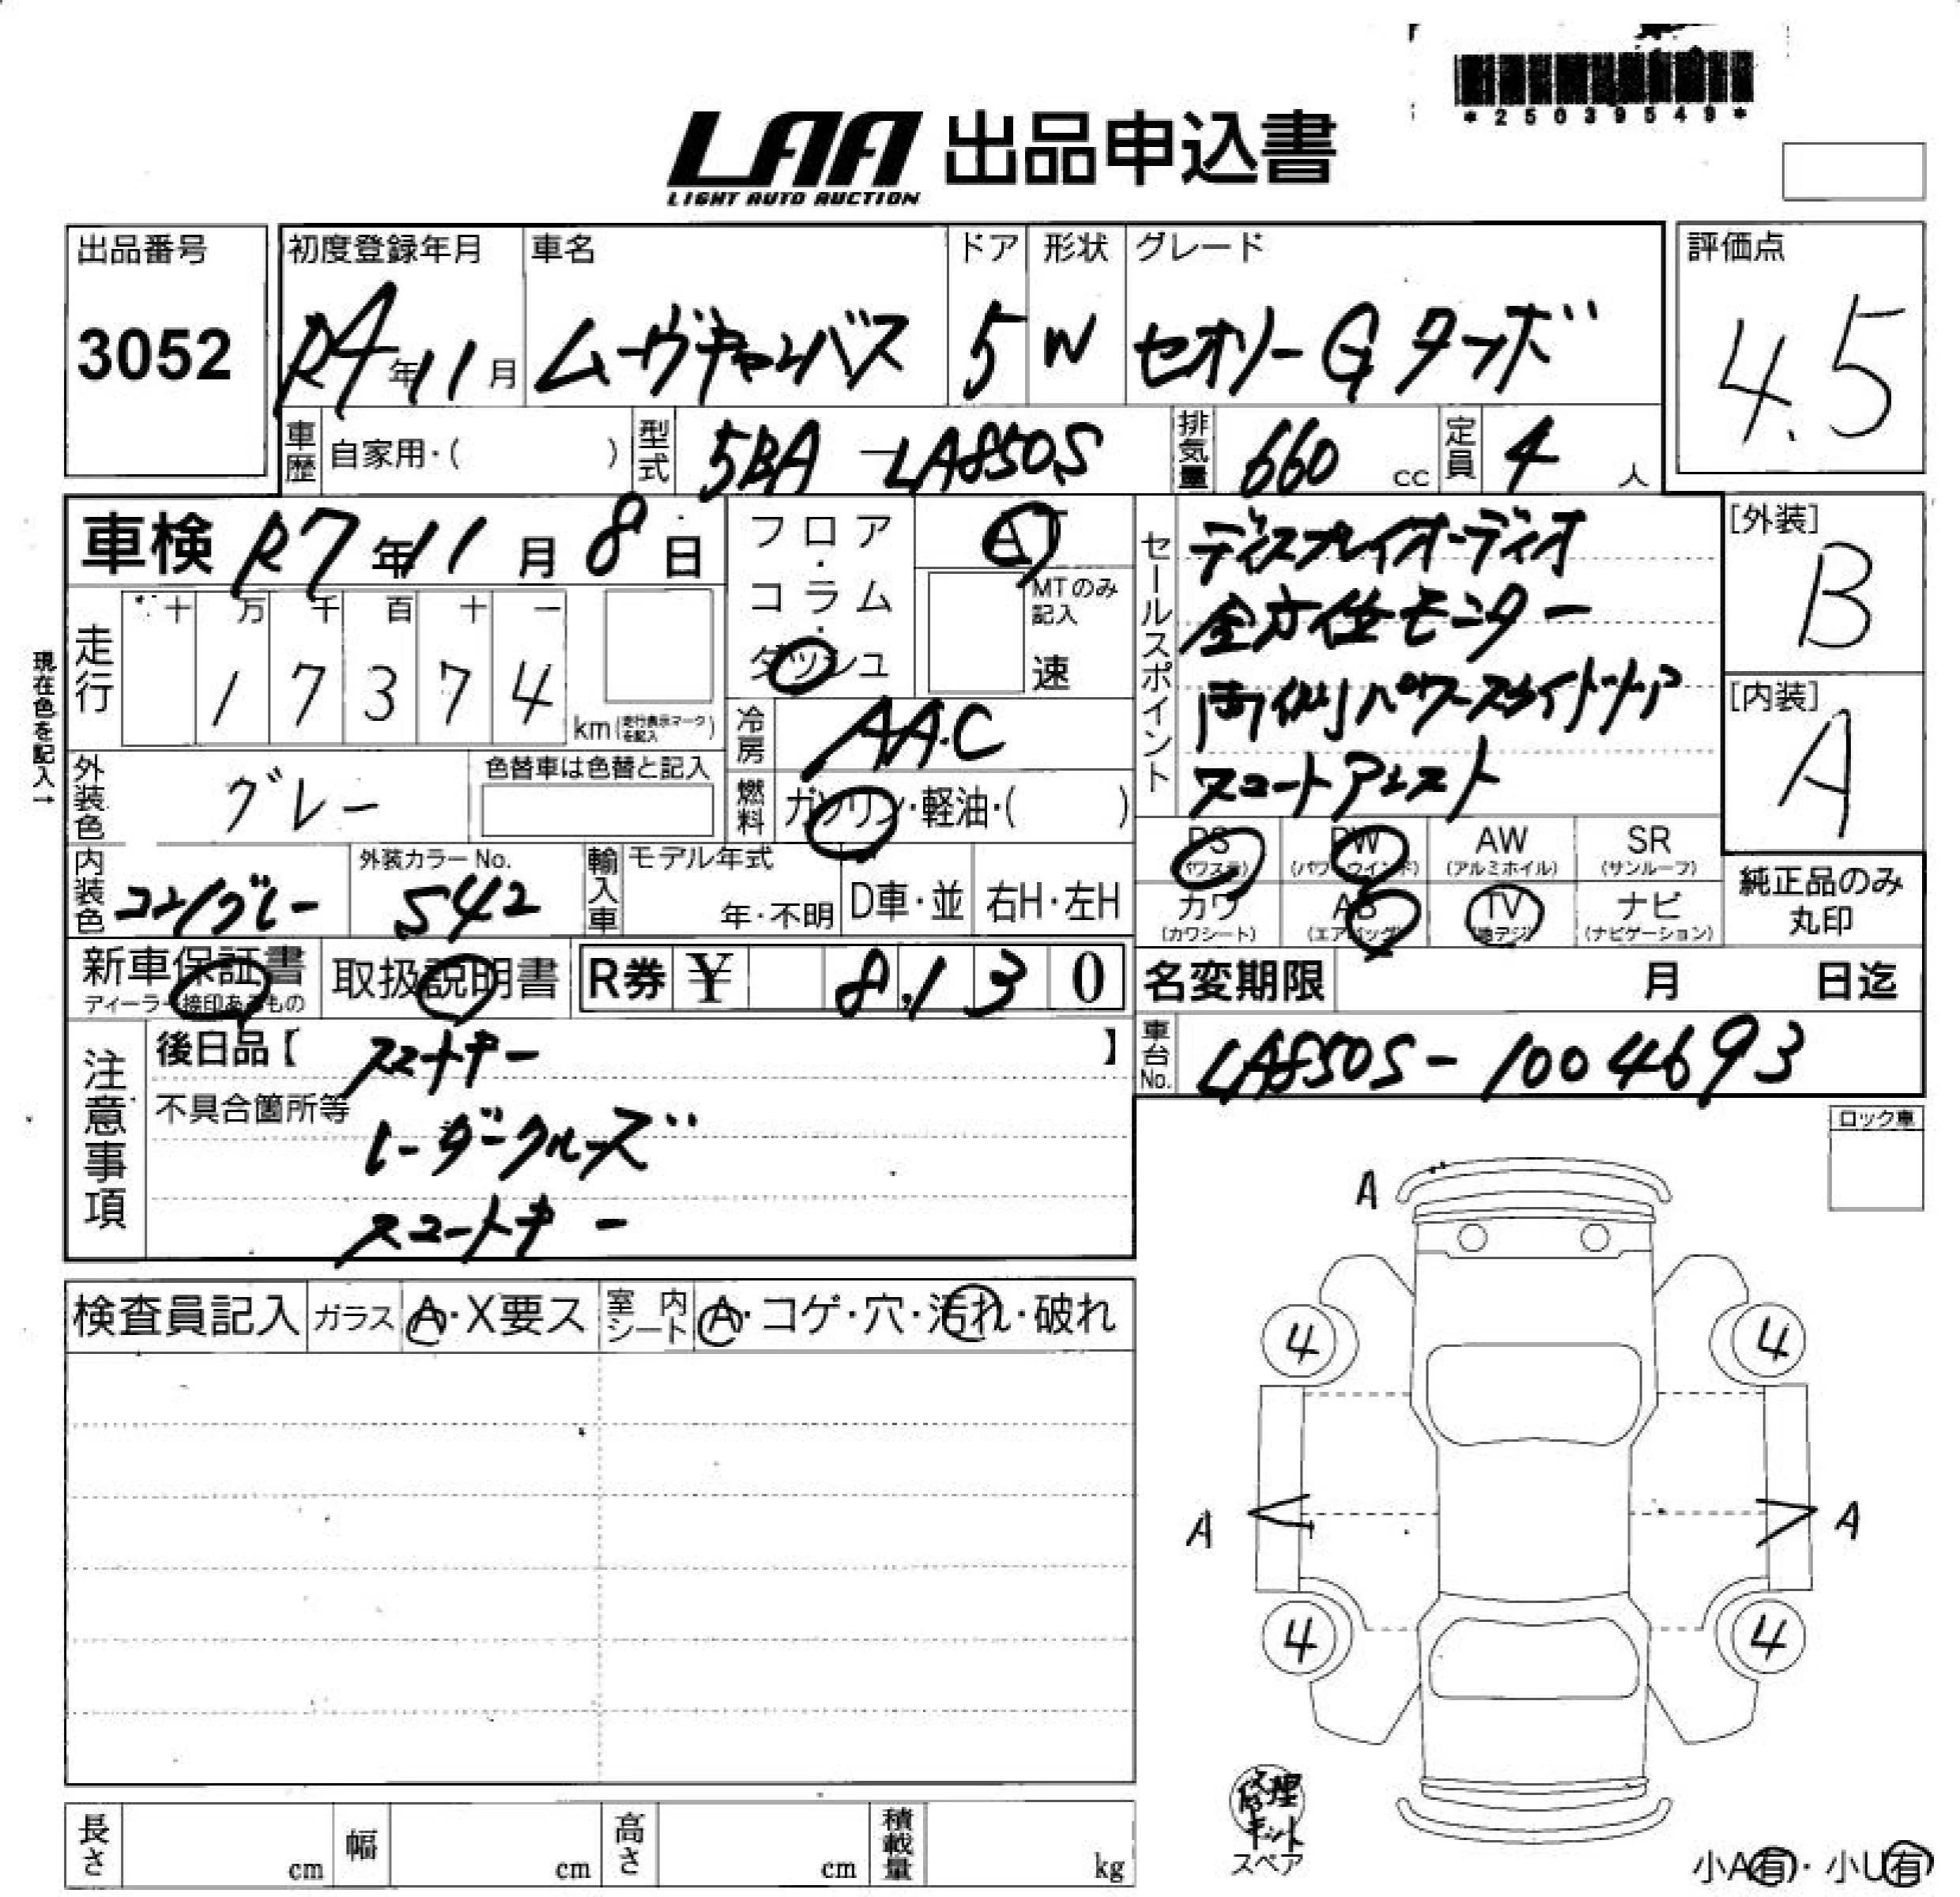 *25039549*
LAA 出品申込書
LIGHT AUTO AUCTION
出品番号
3052
初度登録年月
R4年11月
車名
ムーヴキャンバス
ドア
5
形状
W
グレード
セオリーGターボ
評価点
4.5
車歴 自家用・( )
型式 5BA-LA850S
排気量 660 cc
定員 4 人
車検 R7年11月8日
フロア・コラム・ダッシュ
AT
MTのみ記入
速
現在色を記入→
走行 十 万 千 百 十 一
17374 km (走行表示マークを記入)
冷房 AAC
外装色 グレー
色替車は色替と記入
燃料 ガソリン・軽油・( )
内装色 コン/グレー
外装カラーNo. S42
輸入車 モデル年式 年・不明
D車・並
右H・左H
セールスポイント
ディスプレイオーディオ
全方位モニター
両側パワースライドドア
スマートアシスト
[外装]
B
[内装]
A
PS (パワステ)
PW (パワーウインド)
AW (アルミホイル)
SR (サンルーフ)
カワ (カワシート)
AB (エアバッグ)
TV (地デジ)
ナビ (ナビゲーション)
純正品のみ丸印
新車保証書
ディーラー捺印あるもの
取扱説明書
R券 ¥ 8,130
名変期限 月 日迄
車台No. LA850S-1004693
注意事項
後日品【 スマートキー 】
不具合箇所等
レーダークルーズ
スマートキー
ロック車
検査員記入 ガラス A・X要ス
室内シート A・コゲ・穴・汚れ・破れ
A
4 4
A A
4 4
修理キット
スペア
小A有・小U有
長さ cm
幅 cm
高さ cm
積載量 kg